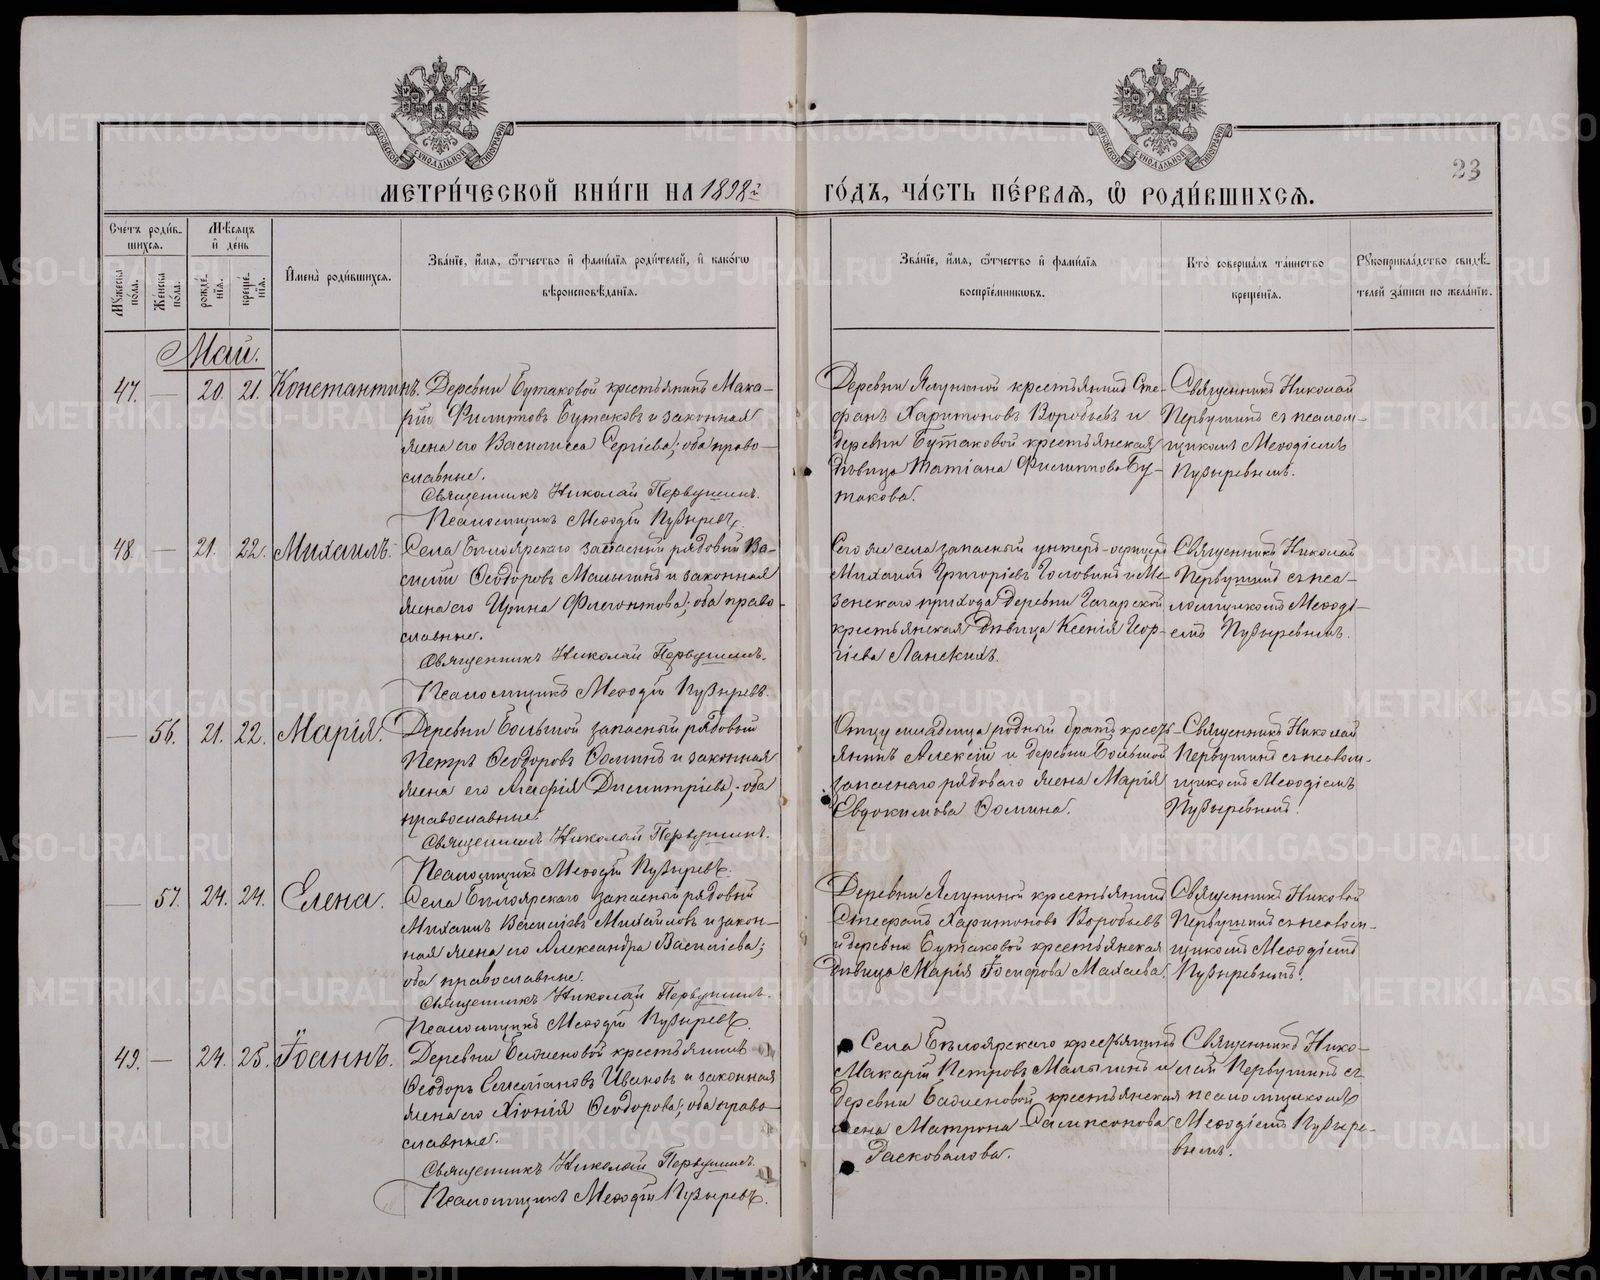 МОСКОВСКОЙ СѴНОДАЛЬНОЙ ТИПОГРАФІИ
МОСКОВСКОЙ СѴНОДАЛЬНОЙ ТИПОГРАФІИ
23
МЕТРИ́ЧЕСКОЙ КНИ́ГИ НА 1898й ГО́ДЪ, ЧА́СТЬ ПЕ́РВАЯ, Ѽ РОДИ́ВШИХСЯ.
Счетъ роди́в-
шихся.
Мѣсяцъ
и҆ де́нь
Мꙋжеска по́ла.
Же́нска по́ла.
рожде́нїѧ.
креще́нїѧ.
И҆мена̀ роди́вшихся.
Зва́нїе, и҆́мѧ, ѻ҆́тчество и҆ фами́лїѧ роди́телей, и҆ како́гѡ
вѣроисповѣ́данїѧ.
Зва́нїе, и҆́мѧ, ѻ҆́тчество и҆ фами́лїѧ
воспрїе́мникѡвъ.
Кто̀ соверша́лъ та́инство
креще́нїѧ.
Рꙋкоприкла́дство свидѣ́-
телей за́писи по жела́нїю.
Май.
47. — 20. 21. Константинъ.
Деревни Бутаковой крестьянинъ Мака-
рій Филиповъ Бутаковъ и законная
жена его Василисса Сергіева; оба право-
славные.
Священникъ Николай Первушинъ.
Псаломщикъ Меѳодій Пузыревъ.
Деревни Ялуниной крестьянинъ Сте-
фанъ Харитоновъ Воробьевъ и
деревни Бутаковой крестьянская
дѣвица Татіана Филиппова Бу-
такова.
Священникъ Николай
Первушинъ съ псалом-
щикомъ Меѳодіемъ
Пузыревымъ.
48. — 21. 22. Михаилъ.
Села Бѣлоярскаго запасный рядовый Ва-
силій Ѳеодоровъ Малыгинъ и законная
жена его Ирина Флегонтова; оба право-
славные.
Священникъ Николай Первушинъ.
Псаломщикъ Меѳодій Пузыревъ.
Его же села запасный унтеръ-офицеръ
Михаилъ Григоріевъ Головинъ и Ме-
зенскаго прихода деревни Гагарской
крестьянская дѣвица Ксенія Геор-
гіева Ланскихъ.
Священникъ Николай
Первушинъ съ пса-
ломщикомъ Меѳоді-
емъ Пузыревымъ.
— 56. 21. 22. Марія.
Деревни Большой запасный рядовый
Петръ Ѳеодоровъ Ѳоминъ и законная
жена его Агафія Димитріева; оба
православные.
Священникъ Николай Первушинъ.
Псаломщикъ Меѳодій Пузыревъ.
Отцу младенца родный братъ кресть-
янинъ Алексій и деревни Большой
запаснаго рядоваго жена Марія
Евдокимова Ѳомина.
Священникъ Николай
Первушинъ съ псалом-
щикомъ Меѳодіемъ
Пузыревымъ.
— 57. 24. 24. Елена.
Села Бѣлоярскаго запасный рядовый
Михаилъ Василіевъ Михайловъ и закон-
ная жена его Александра Василіева;
оба православные.
Священникъ Николай Первушинъ.
Псаломщикъ Меѳодій Пузыревъ.
Деревни Ялуниной крестьянинъ
Стефанъ Харитоновъ Воробьевъ
и деревни Бутаковой крестьянская
дѣвица Марія Іосифова Махаева.
Священникъ Николай
Первушинъ съ псалом-
щикомъ Меѳодіемъ
Пузыревымъ.
49. — 24. 25. Іоаннъ.
Деревни Баженовой крестьянинъ
Ѳеодоръ Емеліановъ Ивановъ и законная
жена его Хіонія Ѳеодорова; оба право-
славные.
Священникъ Николай Первушинъ.
Псаломщикъ Меѳодій Пузыревъ.
Села Бѣлоярскаго крестьянинъ
Макарій Петровъ Малыгинъ и
деревни Баженовой крестьянская
жена Матрона Сампсонова
Расковалова.
Священникъ Нико-
лай Первушинъ съ
псаломщикомъ
Меѳодіемъ Пузыре-
вымъ.
METRIKI.GASO-URAL.RU